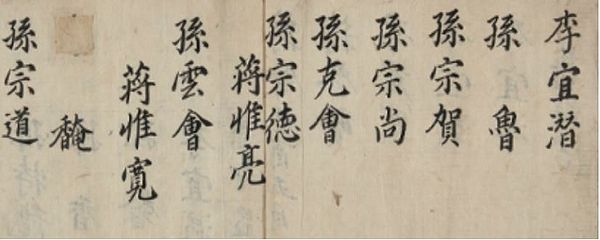 李宜潜
孫魯
孫宗賀
孫宗尚
孫克會
孫宗德
蔣惟亮
孫雲會
蔣惟寬
馣
孫宗道